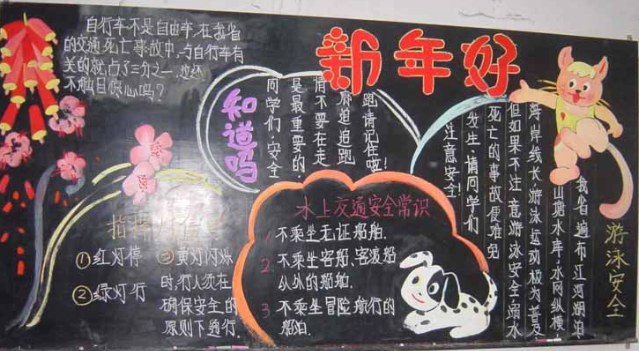 新年好
自行车不是自由车,在我省
的交通死亡事故中,与自行车有
关的就占了三分之一,您还
不触目惊心吗?
知道吗
同学们,安全
是最重要的
请不要在走
廊追追跑
跑请记住啦!
游泳安全
我省遍布江河湖泊
山塘水库,水网纵横
海岸线长,游泳运动极为普及
但如果不注意游泳安全溺水
死亡的事故便难免
发生,请同学们
注意安全!
指挥灯信号
①红灯停
②绿灯行
③黄灯闪烁
时,行人须在
确保安全的
原则下通行
水上交通安全常识
1 不乘坐无证船舶.
2. 不乘坐客船、客渡船
以外的船舶.
3 不乘坐冒险航行的
船舶.